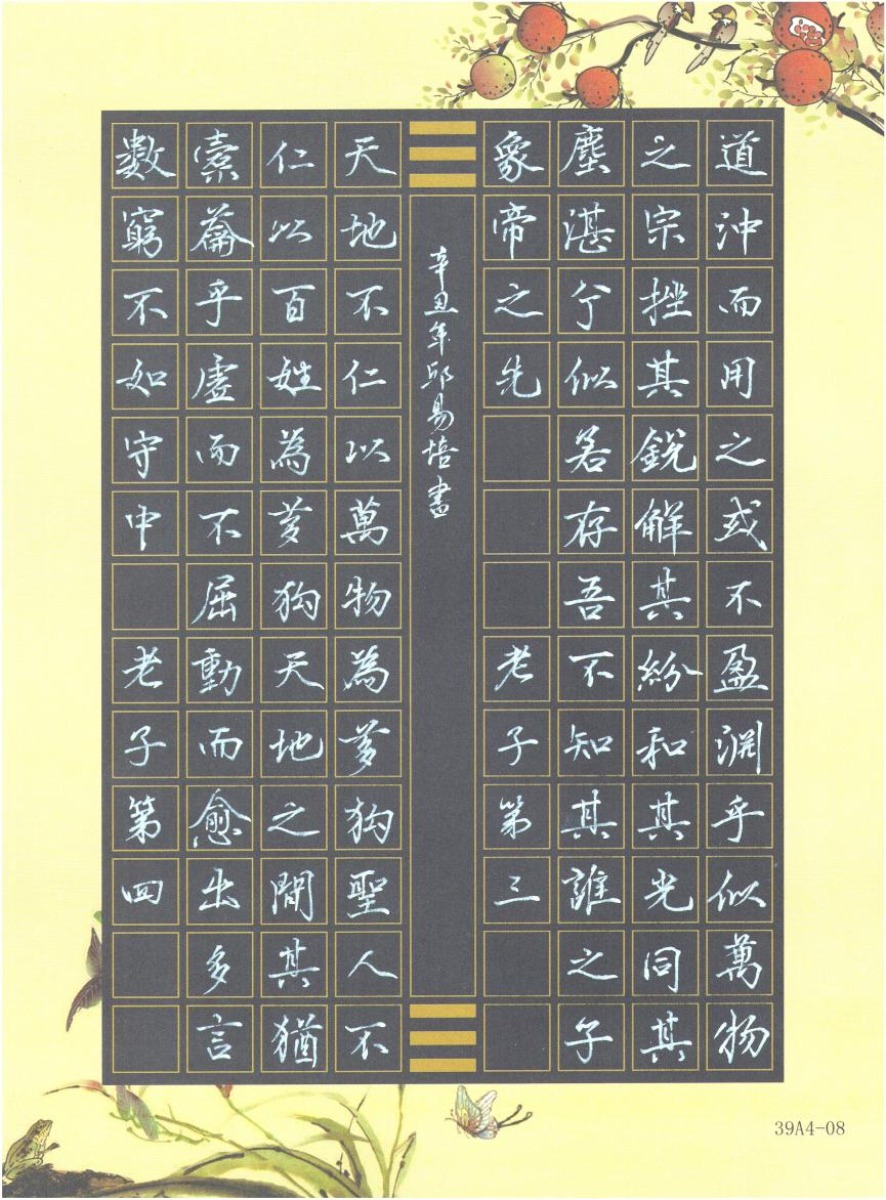 道沖而用之或不盈淵乎似萬物
之宗挫其銳解其紛和其光同其
塵湛兮似若存吾不知其誰之子
象帝之先 老子第三
辛丑年邱易培書
天地不仁以萬物為芻狗聖人不
仁以百姓為芻狗天地之間其猶
橐籥乎虛而不屈動而愈出多言
數窮不如守中 老子第四
39A4-08